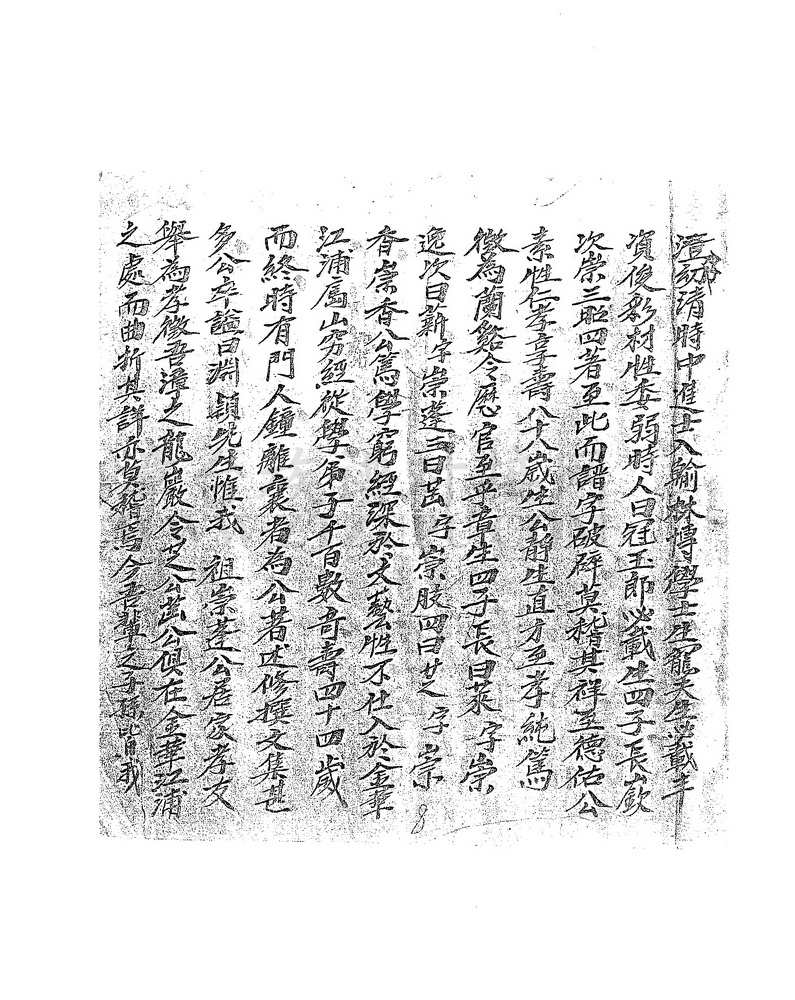 澄幼清時中進士入翰林博學士生龍矢生必載丰
資俊彩材性委弱時人曰冠玉郎必載生四子長嶔
次崇三昭四著至此而譜字破碎莫稽其祥至德佑公
素性仁孝享壽八十八歲生公靜生直方至孝純篤
徵為蘭谿令歷官至平章生四子長曰萊字崇
逸次曰新字崇蓬三曰茁字崇胺四曰芝字崇
香崇香公篤學窮經深於文藝性不仕入於金華
江浦厲山窮經從學弟子千百數奇壽四十四歲
而終時有門人鐘離襄者為公著述修撰文集甚
多公卒謚曰淵穎先生惟我 祖崇蓬公居家孝友
舉為孝徵吾漳之龍巖令芝公茁公俱在金華江浦
之處而曲折其詳亦莫稽焉今吾輩之子孫皆我
8